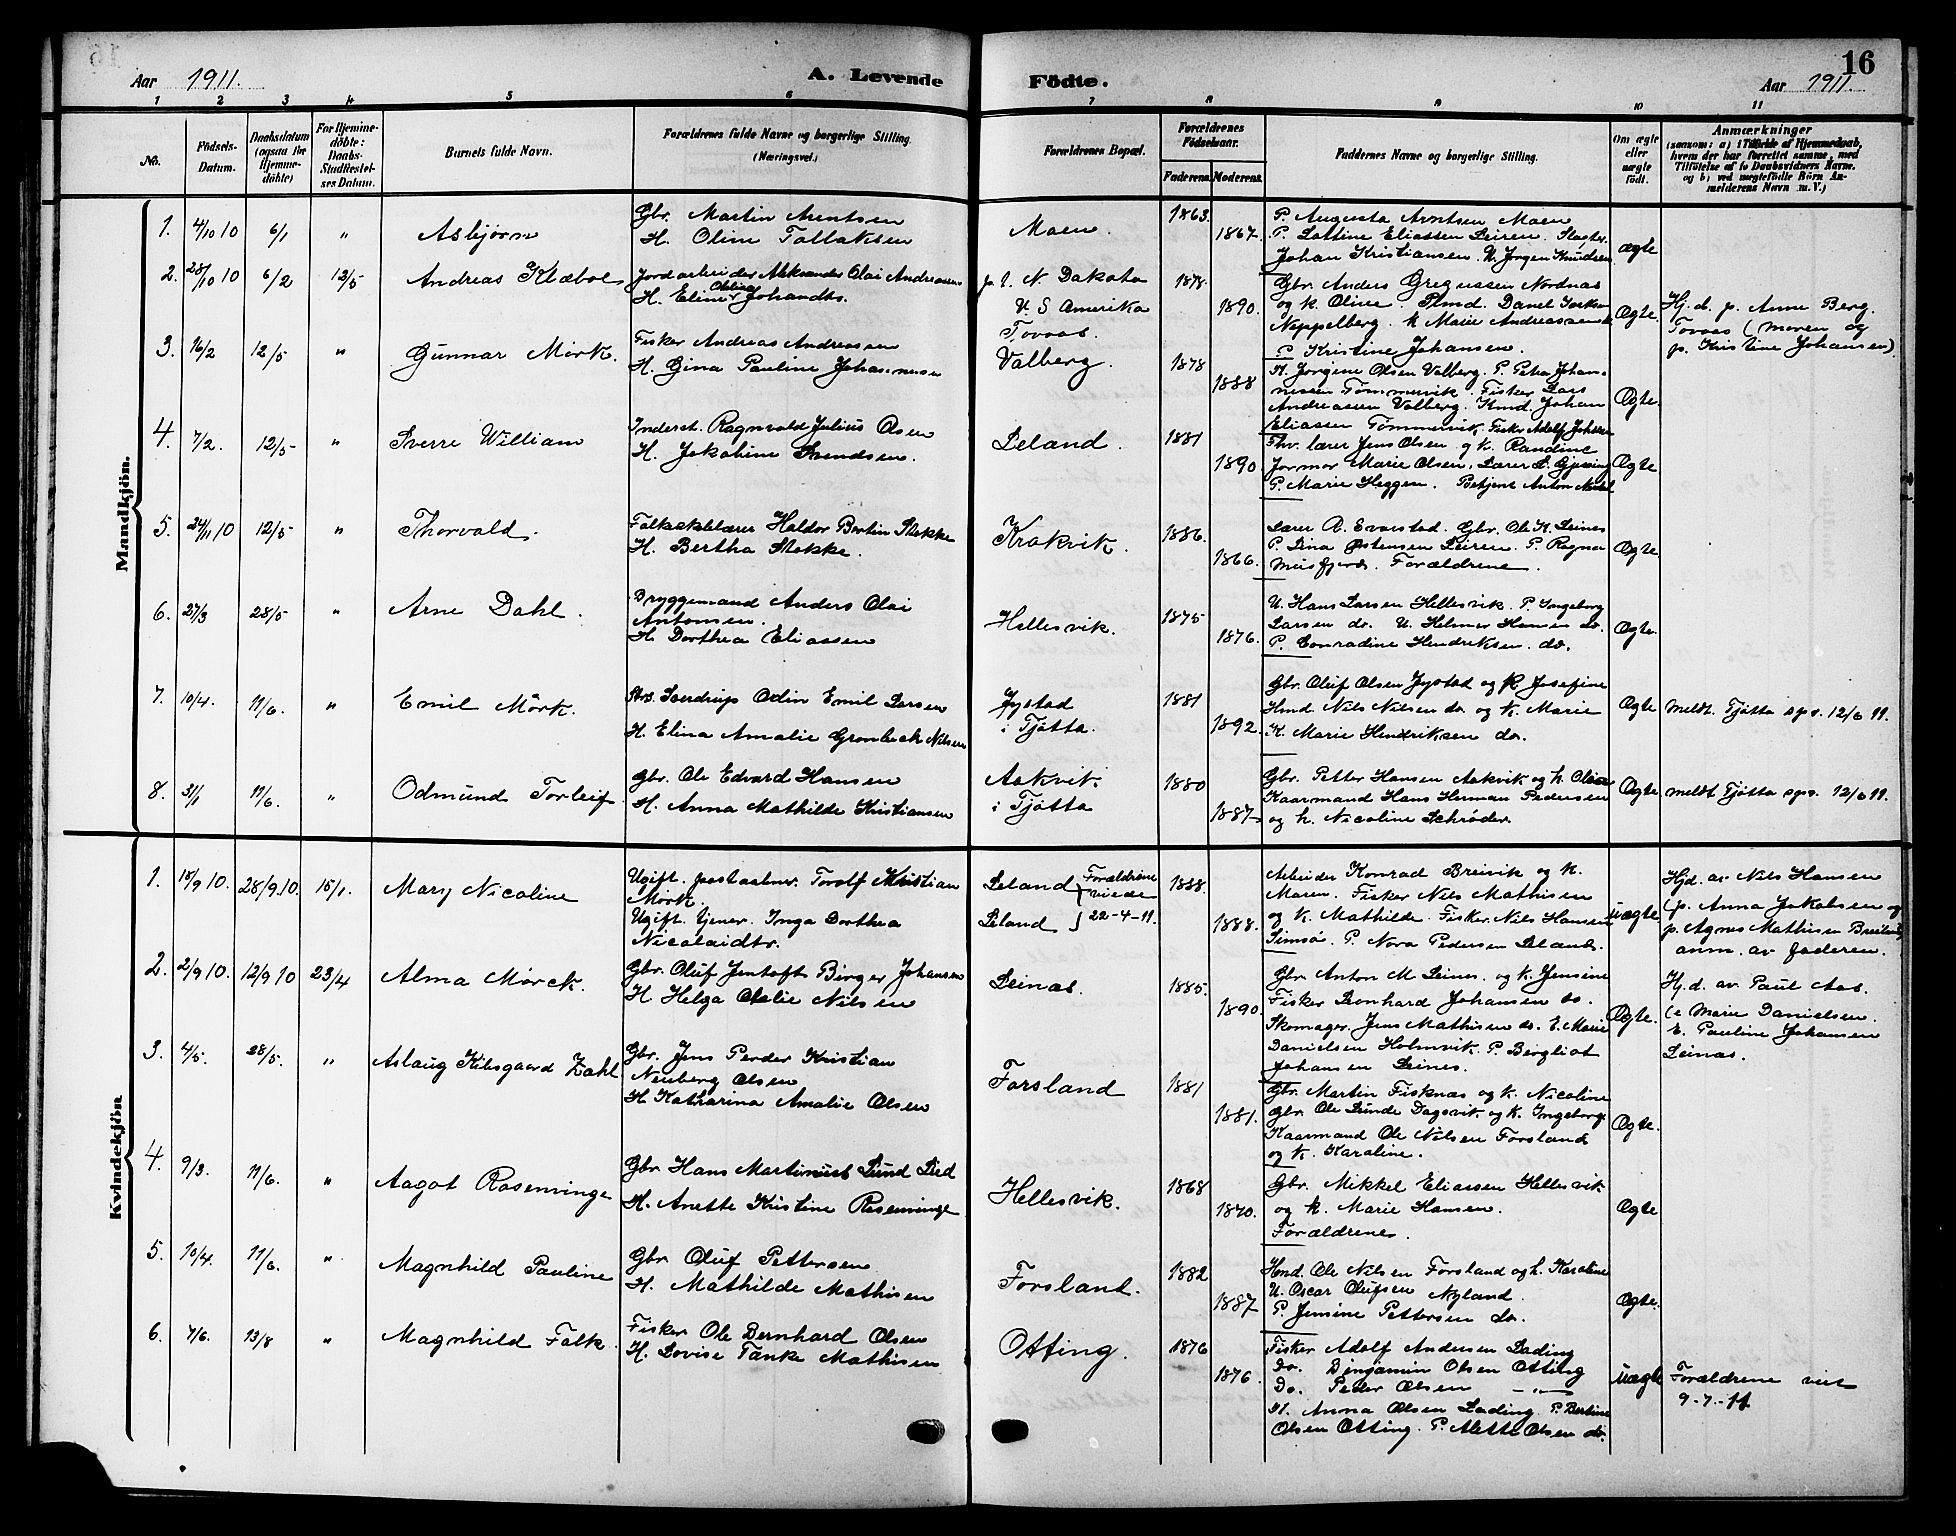 16
Aar 1911. A. Levende Födte. Aar 1911.
1 2 3 4 5 6 7 8 9 10 11
No. Födsels-Datum. Daabsdatum (ogsaa for Hjemme-döbte) For Hjemme-döbte: Daabs-Stadfæstel-ses Datum. Barnets fulde Navn. Forældrenes fulde Navne og borgerlige Stilling. (Næringsvei.) Forældrenes Bopæl. Forældrenes Födselsaar. Faderens. Moderens. Faddernes Navne og borgerlige Stilling. Om ægte eller uægte födt. Anmærkninger (saasom: a) i Tilfælde af Hjemmedaab, hvem der har forrettet samme, med Tilföielse af to Daabsvidners Navne, og b) ved uægtefödte Börn An-melderens Navn m. V.)
Mandkjön.
1. 4/10 10 6/1 " Asbjørn Gbr. Martin Arentsen Moen. 1863. P. Augusta Arntsen Moen
H. Oline Tollaksen 1867. P. Lottine Eliassen Leiren. Slagter
Johan Kristiansen. U. Jørgen Knudsen ægte
2. 28/10 10 6/2 12/5 Andreas Klæboe Jordarbeider Aleksander Olai Andreassen p. t. N. Dakota 1878. Gbr. Anders Gregussen Nordnæs
H. Eline Oteliea Johandtr. U. S Amerika 1890. og k. Oline Plmd. Danel
Tovaas Neppelberg. k Marie Andreassen Ægte. Hj.d. p. Anne Berg.
P. Kristine Johansen. Tovaas (moren og
p. Kristine Johansen).
3. 16/2 12/5 " Gunnar Mørk. Fisker Andreas Andreassen Valberg. 1878 K. Jorgine Olsen Valberg. P. Petra Johan-
H. Gina Pauline Johannesen 1888 nessen Tømmervik. Fisker Lars
Andreassen Valberg. Kmd Johan Ægte.
Eliassen Tømmervik. Fisker Adolf
4. 7/2. 12/5 " Sverre William Inderst. Ragnvald Julius Olsen Leland. 1881 Fhv. lærer Jens Olsen og k. Randine
H. Jakobine Svendsen. 1890 Jormor Marie Olsen. Lærer Ægte
P. Marie Heggen. Betjent Anton
5. 24/11 10 12/5 " Thorvald. Folkeskolelærer Haldor Bertin Stokke Krokvik. 1886. Lærer A. Evarstad. Gbr. Ole K. Leines
H. Bertha Stokke. 1866. P. Lina Østensen Leiren. P. Ragna
Meisfjord. Forældrene. Ægte
6. 27/3 28/5 " Arne Dahl. Bryggemand Anders Olai Hellesvik. 1875 U. Hans Larsen Hellesvik. P. Ingeborg
Antonsen. 1876. Larsen do. U. Helmer Hansen do.
H. Dorthea Eliassen P. Conradine Hendriksen. do. Ægte.
7. 10/4. 11/6. " Emil Mörk. Skrs. Sverdrup Odin Emil Larsen Jystad 1881 Gbr. Oluf Olsen Jystad og k Josefine
H. Elina Amalie Grønbeck Nilsen i Tjøtta. 1892. Hmd Nils Nilsen do. og k. Marie Ægte meldt Tjøtta spr. 12/6 11.
K. Marie Hendriksen do.
8. 31/1 11/6. " Odmund Torleif Gbr. Ole Edvard Hansen Aakvik. 1880 Gbr. Petter Hansen Aakvik og h. Oline
H. Anna Mathilde Kristiansen i Tjøtta 1887 Kaarmand Hans Herman Pedersen Ægte meldt Tjøtta spr. 12/6 11.
og h. Nicoline Schrøder.
Kvindekjön
1. 15/9 10. 28/9.10. 15/1. Mary Nicoline Ugift. postaabner. Torolf Kristian Leland Forældrene 1888. Arbeider Konrad Breivik og k.
Mørk. viede Maren. Fisker Nils Mathisen
Ugift tjener. Inga Dorthea Leland 22-4-11. 1888. og k. Mathilde. Fisker. Nils Hansen uægte
Nicolaidtr. Simsø. P. Nora Pedersen Leland.
Hjd. av Nils Hansen
(p. Anna Jakobsen og
p. Agnes Mathisen Breiland
anm. av faderen.
2. 2/9 10. 12/9 10 23/4 Alma Mørck. Gbr. Oluf Jentoft Birger Johansen Leines. 1885. Gbr. Anton M Leines. og k. Jensine
H Helga Otelie Nilsen 1890. Fisker Leonhard Johansen do.
Skomager. Jens Mathisen do. E. Marie Ægte.
Danielsen Holmvik. P. Bergliot
Johansen Leines.
Hj.d. av Paul Aas.
(e Marie Danielsen.
E. Pauline Johansen
Leinas.
3. 4/5. 28/5. " Aslaug Kilsgaard Zahl Gbr. Jens Perder Kristian Forsland 1881 Gbr. Martin Fisknæs og k. Nicoline
Neuberg Olsen 1881. Gbr. Ole Lunde Dagsvik. og k. Ingeborg.
H Katharina Amalie Olsen Kaarmand Ole Nilsen Forsland Ægte.
og k. Karoline.
4. 9/3. 11/6. " Aagot Rosenvinge Gbr. Hans Martinus Lund Lied Hellesvik. 1868 Gbr. Mikkel Eliassen Hellesvik
H. Anette Kristine Rosenvinge 1870. og k. Marie Hansen. Ægte
Forældrene.
5. 10/4. 11/6. " Magnhild Pauline Gbr. Oluf Pettersen Forsland. 1882 Hmd. Ole Nilsen Forsland og h. Karoline
H. Mathilde Mathisen 1887 U. Oscar Olufsen Nyland.
P. Jensine Pettersen do. Ægte.
6. 7/6. 13/8 " Magnhild Falk. Fisker Ole Bernhard Olsen Otting. 1876 Fisker Adolf Andersen Lading
H. Lovise Tanke Mathisen 1876. Do. Benjamin Olsen Otting uægte Forældrene viet
Do. Peder Olsen —"— 9-7-11
H. Anna Olsen Lading. P. Bertine
Olsen Otting. P. Alette Olsen do.